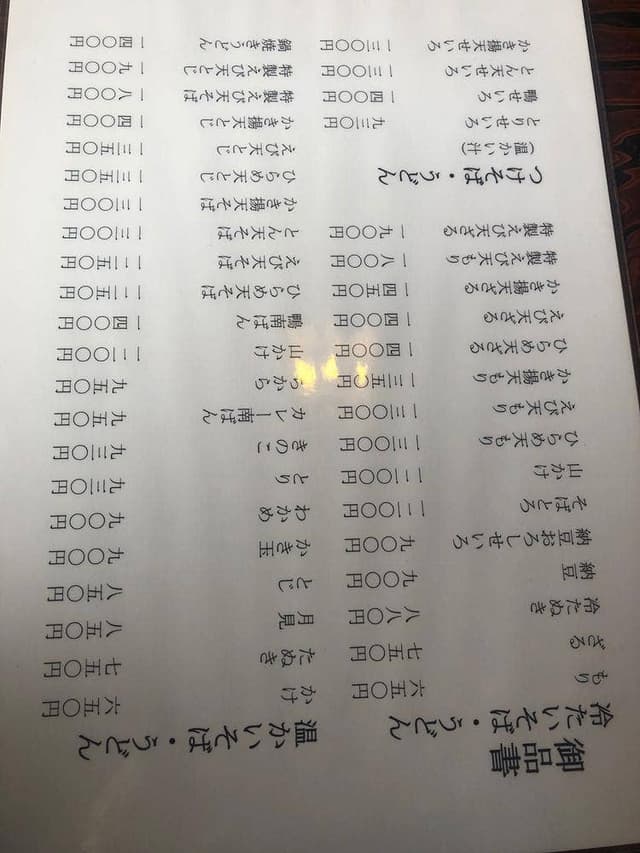 御品書
冷たいそば・うどん
もり 六五〇円
ざる 七五〇円
冷たぬき 八八〇円
納豆 九〇〇円
納豆おろしせいろ 九〇〇円
そばとろ 一二〇〇円
山かけ 一二〇〇円
ひらめ天もり 一三〇〇円
えび天もり 一三〇〇円
かき揚天もり 一三五〇円
ひらめ天ざる 一四〇〇円
えび天ざる 一四〇〇円
かき揚天ざる 一四五〇円
特製えび天もり 一八〇〇円
特製えび天ざる 一九〇〇円
つけそば・うどん
(温かい汁)
とりせいろ 九三〇円
鴨せいろ 一四〇〇円
とん天せいろ 一三〇〇円
かき揚天せいろ 一三〇〇円
温かいそば・うどん
かけ 六五〇円
たぬき 七五〇円
月見 八五〇円
とじ 八五〇円
かき玉 九〇〇円
わかめ 九〇〇円
とり 九三〇円
きのこ 九三〇円
カレー南ばん 九五〇円
ちから 九五〇円
山かけ 一二〇〇円
鴨南ばん 一四〇〇円
ひらめ天そば 一二五〇円
えび天そば 一二五〇円
とん天そば 一三〇〇円
かき揚天そば 一三〇〇円
ひらめ天とじ 一三五〇円
えび天とじ 一三五〇円
かき揚天とじ 一四〇〇円
特製えび天そば 一八〇〇円
特製えび天とじ 一九〇〇円
鍋焼きうどん 一四〇〇円